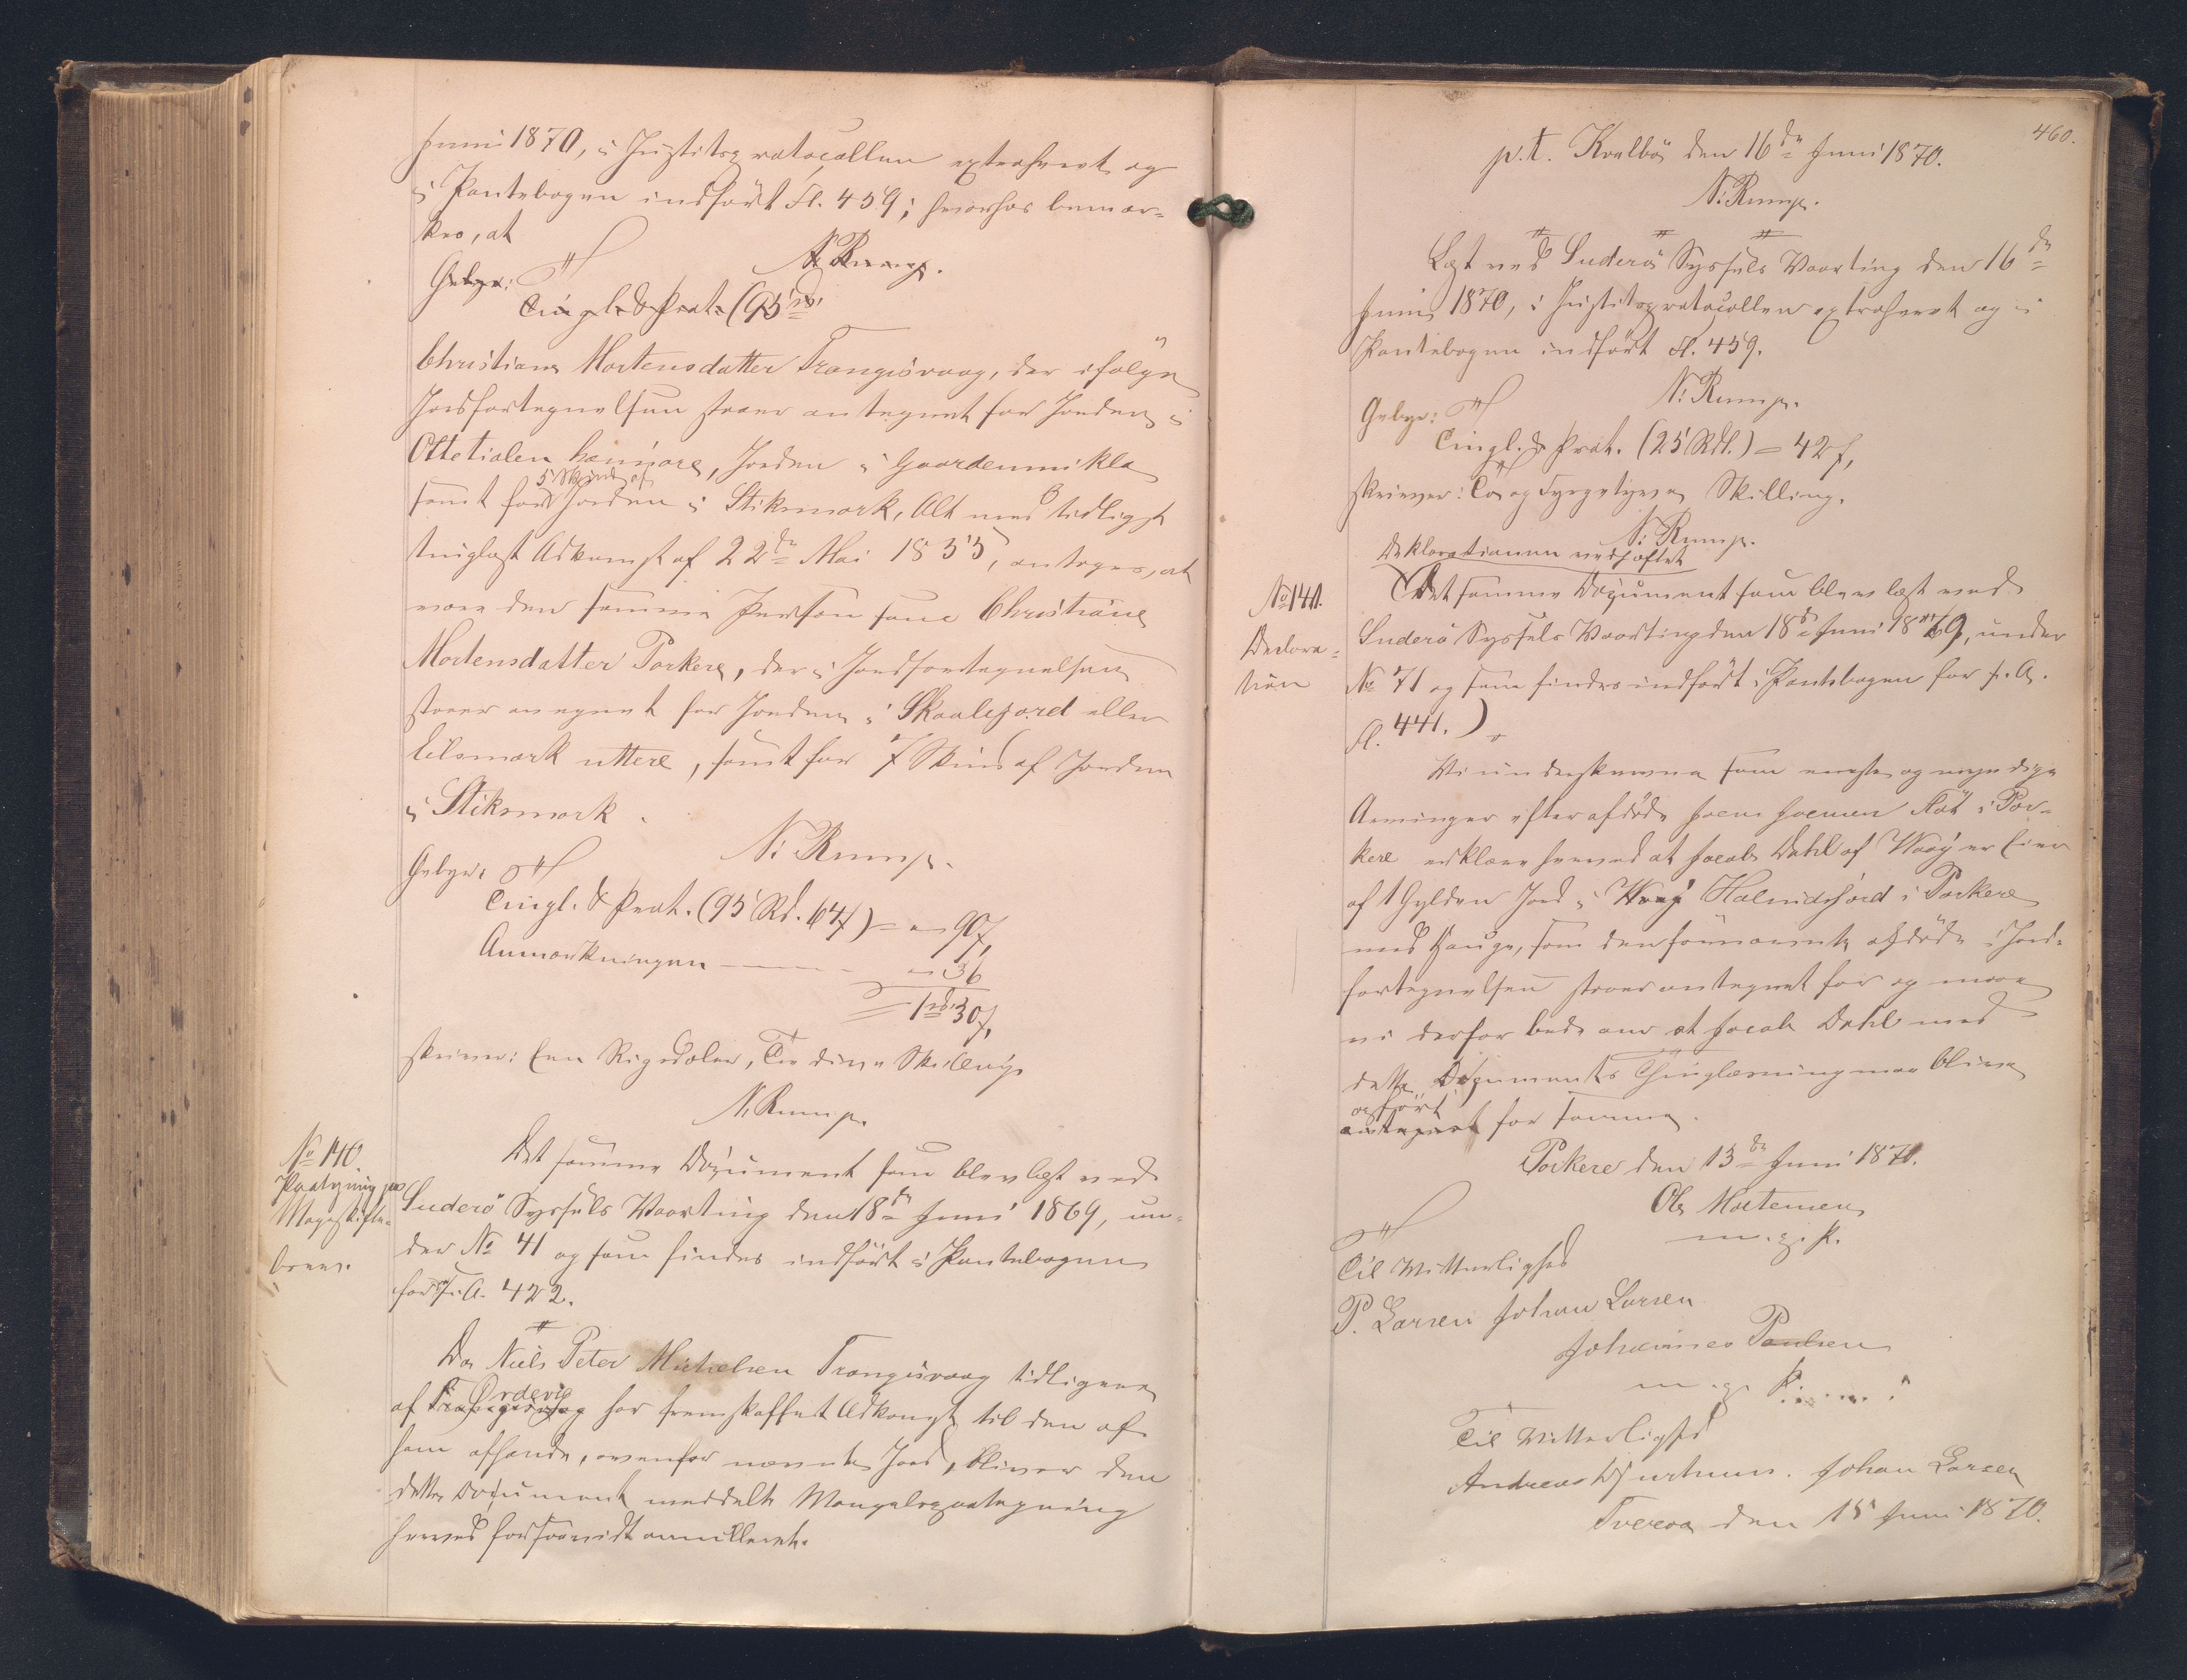 Juni 1870, i Justitsprotocollen extraheret og
i Pantebogen indført Fl. 459; hvorhos bemær-
kes, at
N. Rump.
Gebyr:
Tingl. & Prot. (95 rd.
Christiane Mortensdatter Trangisvaag, der ifølge
Jordfortegnelsen staaer antegnet for Jorden i
Ottetialen, Jorden i Gaardenmikla
5 Skind af
samt for Jorden i Stiksmork, Alt med tidligst
tinglæst Adkomst af 22de Mai 1855, antages, at
være den samme Person som Christiane
Mortensdatter Porkere, der i Jordfortegnelsen
staaer anegnet for Jorden i Skaalefjord eller
Eilsmork uttere, samt for 7 Skind af Jorden
i Stiksmork.
N. Rump.
Gebyr:
Tingl. & Prot. (95 Rd. 64 ß) = " 90 ß,
Anmærkningen — " 36
= 1 rd. 30 ß,
skriver: Een Rigsdaler, Tredive Skilling.
N. Rump.
No 140.
Paategning paa
Mageskifte-
brev.
Det samme Document som blev læst ved
Suderö Syssels Vaarting den 18de Juni 1869, un-
der No 41 og som findes indført i Pantebogen
for f. A. 422.
Da Niels Peter Michelsen Trangisvaag tidligere
Ordevig
af Trangisvaag har fremskaffet Adkomst til den af
ham afhændte, ovenfor nævnte Jord, bliver den
dette Document meddelte Mangelspaategning
herved forsaavidt annulleret.
460.
p.t. Kvalbö den 16de Juni 1870.
N. Rump.
Læst ved Suderö Syssels Vaarting den 16de
Juni 1870, i Justitsprotocollen extraheret og i
Pantebogen indført Fl. 459.
N. Rump.
Gebyr:
Tingl. & Prot. (25 Rdl.) = 42 ß,
skriver: To og Fyrgetyve Skilling.
N. Rump.
Deklarationen vedhæftet
No 141.
Declara-
tion
(Det samme Document som blev læst ved
Suderö Syssels Vaarting den 18de Juni 1869, under
No 71 og som findes indført i Pantebogen for f. A.
Fl. 441.)
Vi underskrevne som eneste og myndige
Arvinger efter afdøde Joen Joensen Flöt i Por-
kere erklære herved at Jacob Dahl af Waag er Eier
af 1 Gylden Jord i Waag Halmidsfjord i Porkere
med Hauge, som den førnævnte afdøde i Jord-
fortegnelsen staaer antegnet for og maae
vi derfor bede om at Jacob Dahl med
dette Documents Thinglæsning maa blive
opført
antegnet for samme.
Porkere den 13de Juni 1870.
Ole Mortensen
m. g. P.
Til Vitterlighed
P. Larsen Johan Larsen
Johannes Poulsen
m. g. P.
Til Vitterlighed
Andreas Djurhuus. Johan Larsen
Tveraa den 15 Juni 1870.